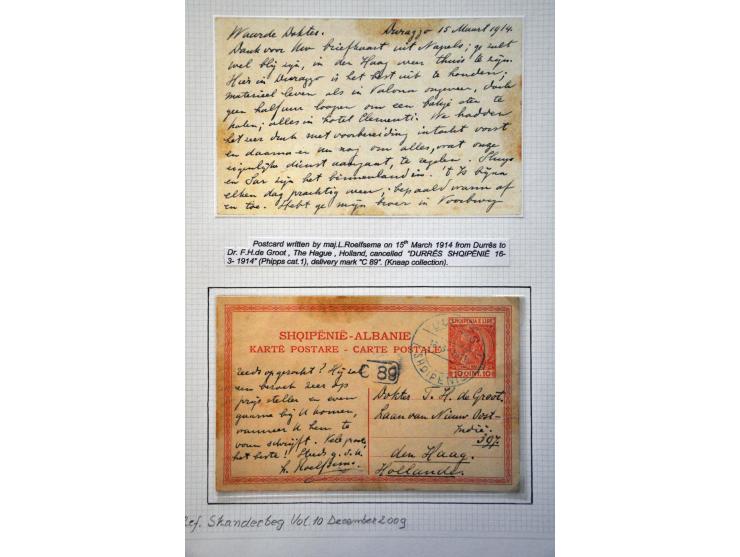 Waarde Dokter. Durazzo 15 Maart 1914.
Dank voor Uw briefkaart uit Napels; ge zult
wel blij zijn, in den Haag weer thuis te zijn.
Hier in Durazzo is het best uit te houden;
materieel leven als in Valona ongeveer, doch
geen half uur loopen om een bakje eten te
halen; alles in hotel Clementi. We hadden
het zeer druk met voorbereiding intocht vorst
en daarna en nu nog om alles, wat onze
eigenlijke dienst aangaat, te regelen. Sluys
en Sar zijn het binnenland in. 't Is bijna
elken dag prachtig weer, bepaald warm af
en toe. Hebt ge mijn broer in Voorburg
Postcard written by maj.L.Roelfsema on 15th March 1914 from Durrës to
Dr. F.H.de Groot , The Hague , Holland, cancelled "DURRËS SHQIPËNIË 16-
3- 1914" (Phipps cat.1), delivery mark "C 89". (Knaap collection).
SHQIPËNIË-ALBANIE
KARTË POSTARE - CARTE POSTALE
SHQIPENIA E LIRE
10 QINT. 10
SHQIPENIE
C 89
reeds opgezocht? Hij zal
een bezoek zeer op
prijs stellen en even
gaarne bij U komen,
wanneer U hem te
voren schrijft. Vele groeten,
het beste! Steeds g. d. U.
L. Roelfsema.
Dokter F. H. de Groot.
Laan van Nieuw Oost-
Indië.
397.
den Haag.
Hollande.
Ref. Skanderbeg Vol. 10 December 2009